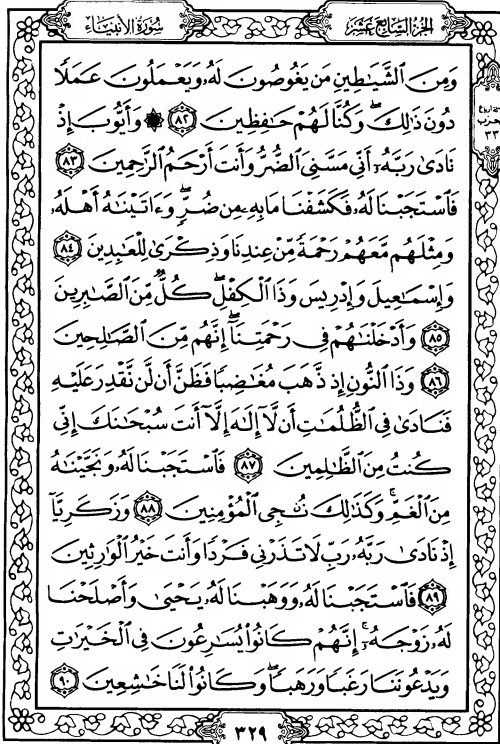 سُورَةُ الأنبيَاء
الجُزءُ السَّابِعُ عَشَرَ
وَمِنَ ٱلشَّيَٰطِينِ مَن يَغُوصُونَ لَهُۥ وَيَعْمَلُونَ عَمَلًا
دُونَ ذَٰلِكَۖ وَكُنَّا لَهُمْ حَٰفِظِينَ ٨٢ ۞ وَأَيُّوبَ إِذْ
نَادَىٰ رَبَّهُۥٓ أَنِّي مَسَّنِيَ ٱلضُّرُّ وَأَنتَ أَرْحَمُ ٱلرَّٰحِمِينَ ٨٣
فَٱسْتَجَبْنَا لَهُۥ فَكَشَفْنَا مَا بِهِۦ مِن ضُرٍّۖ وَءَاتَيْنَٰهُ أَهْلَهُۥ
وَمِثْلَهُم مَّعَهُمْ رَحْمَةً مِّنْ عِندِنَا وَذِكْرَىٰ لِلْعَٰبِدِينَ ٨٤
وَإِسْمَٰعِيلَ وَإِدْرِيسَ وَذَا ٱلْكِفْلِۖ كُلٌّ مِّنَ ٱلصَّٰبِرِينَ
٨٥ وَأَدْخَلْنَٰهُمْ فِي رَحْمَتِنَآۖ إِنَّهُم مِّنَ ٱلصَّٰلِحِينَ
٨٦ وَذَا ٱلنُّونِ إِذ ذَّهَبَ مُغَٰضِبًا فَظَنَّ أَن لَّن نَّقْدِرَ عَلَيْهِ
فَنَادَىٰ فِي ٱلظُّلُمَٰتِ أَن لَّآ إِلَٰهَ إِلَّآ أَنتَ سُبْحَٰنَكَ إِنِّي
كُنتُ مِنَ ٱلظَّٰلِمِينَ ٨٧ فَٱسْتَجَبْنَا لَهُۥ وَنَجَّيْنَٰهُ
مِنَ ٱلْغَمِّۚ وَكَذَٰلِكَ نُـۨجِي ٱلْمُؤْمِنِينَ ٨٨ وَزَكَرِيَّآ
إِذْ نَادَىٰ رَبَّهُۥ رَبِّ لَا تَذَرْنِي فَرْدًا وَأَنتَ خَيْرُ ٱلْوَٰرِثِينَ
٨٩ فَٱسْتَجَبْنَا لَهُۥ وَوَهَبْنَا لَهُۥ يَحْيَىٰ وَأَصْلَحْنَا
لَهُۥ زَوْجَهُۥٓۚ إِنَّهُمْ كَانُوا۟ يُسَٰرِعُونَ فِي ٱلْخَيْرَٰتِ
وَيَدْعُونَنَا رَغَبًا وَرَهَبًاۖ وَكَانُوا۟ لَنَا خَٰشِعِينَ ٩٠
٣٢٩